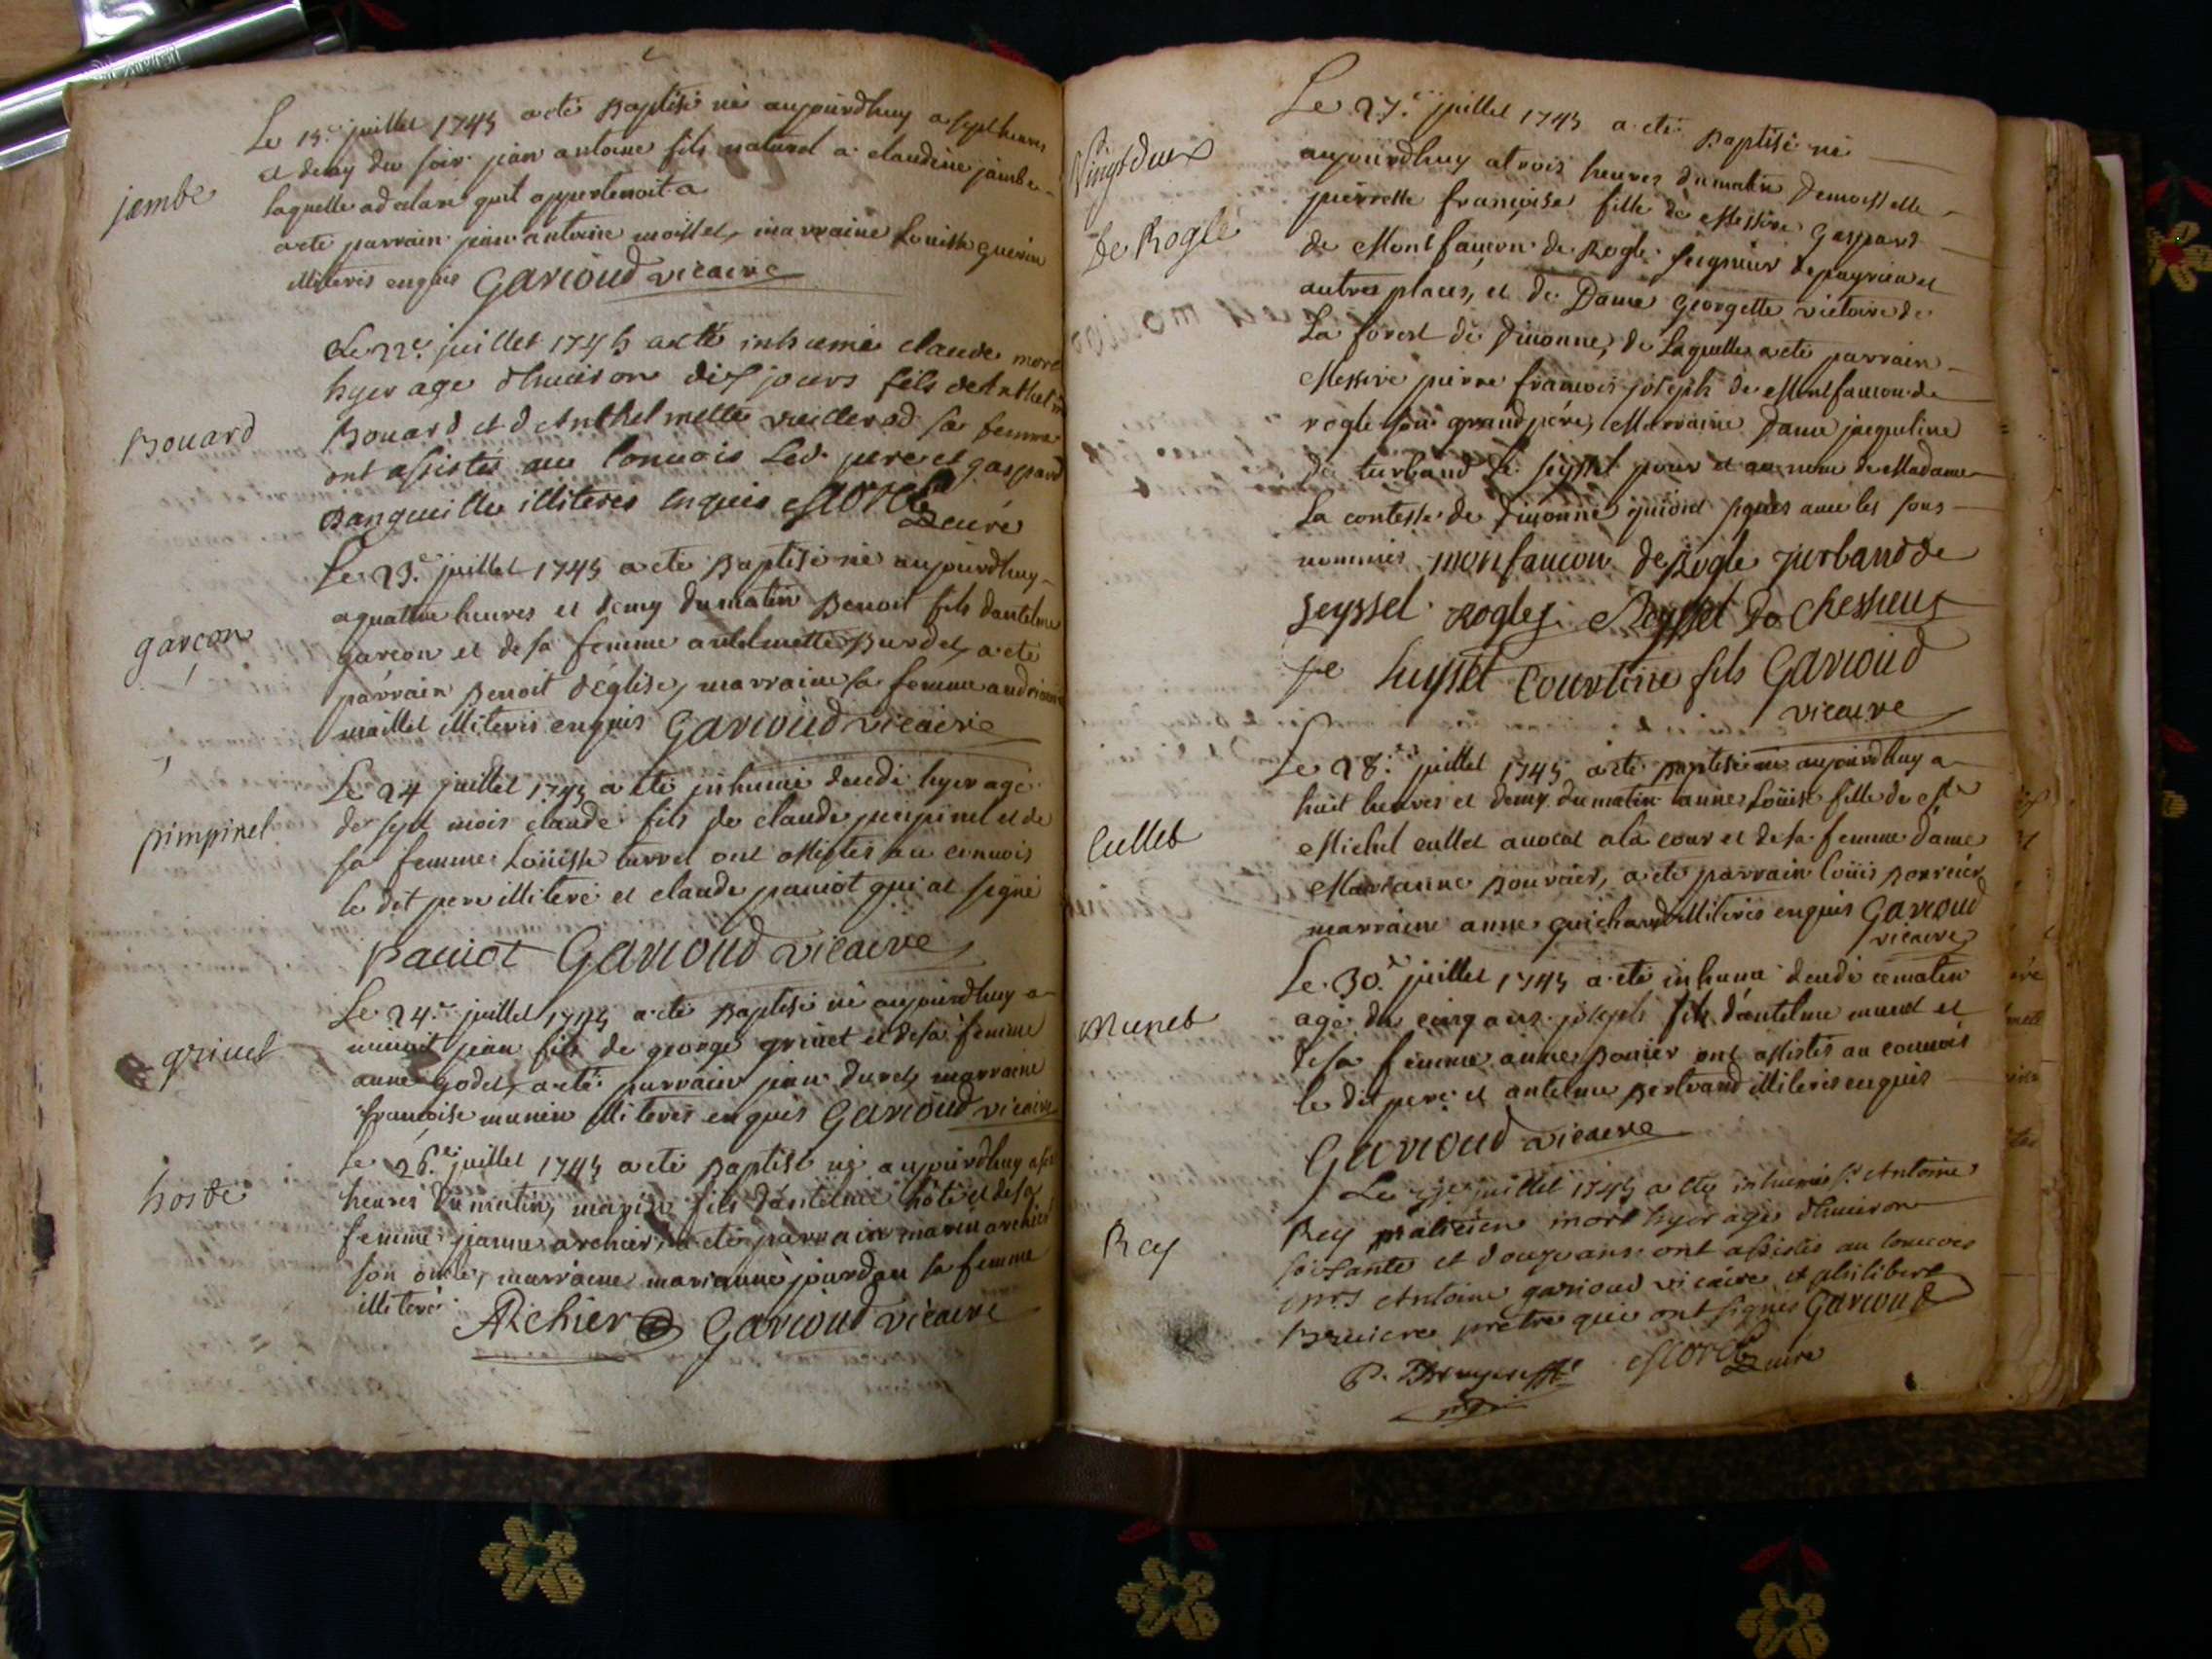 Le 19.e juillet 1745 a eté Baptisé né aujourdhuy a sept heures
et demy du soir jean antoine fils naturel a claudine jambe
jambe
laquelle a declaré quil appartenoit a
a eté parrain jean antoine moillet, marraine Louisse guerin
illiteris enquis Garioud vicaire
Le 22e. juillet 1745 a eté inhumé claude mort
hyer agé dhuiron dix jours fils de Anthel
Bouard
Bouard et d Anthelmette sa femme
ont assistes au convois Led. pere et gaspard
Banqueille illiteres enquis curé
Le 23.e juillet 1745 a eté Baptisé né aujourdhuy
a quattre heures et demy du matin Benoit fils dantelme
garçon
garcon et de sa femme antelmette Burdet, a eté
parrain Benoit déglise, marraine sa femme
maillet illiteris enquis Garioud vicaire
Le 24 juillet 1745 a eté inhumé decedé hyer agé
de sept mois claude fils de claude pimpinel et de
pimpinel
sa femme Loüisse turrel ont assistés au convois
le dit pere illiteré et claude pauiot qui at signé
pauiot Garioud vicaire
Le 24.e juillet 1745 a eté Baptisé né aujourdhuy a
minuit jean fils de george grinet et de sa femme
grinet
anne godet, a eté parrain jean duret, marraine
francoise munin illiteris enquis Garioud vicaire
Le 26.e juillet 1745 a eté Baptisé né aujourdhuy a
hoste
heures du matin, marin fils dantelme hôte et de sa
femme jeanne archier, a eté parrain marin archier
son oncle, marraine marianne jourdan sa femme
illiteré
ARchier Garioud vicaire
Vingt deux
Le 27.e juillet 1745 a eté Baptisé né
aujourdhuy a trois heures du matin Demoisselle
De Rogle
pierrette françoise fille de Messire Gaspard
de Montfaucon de Rogle seigneur de peyrieu et
autres places, et de Dame georgette victoire de
La forest de Divonne, de Laquelle a eté parrain
Messire pierre francois joseph de Montfaucon de
rogle son grand pere, Marraine Dame jacqueline
de turband de seyssel pour et au nom de Madame
La contesse de Divonne qui ont signés avec les sous
nommés monfaucon de Rogle jurband de
seyssel Rogles Seyssel
seyssel Courtine fils Garioud
vicaire
Le 28.e juillet 1745 a eté Baptisé né aujourdhuy a
huit heures et demy du matin anne Loüise fille de Mr
Cullet
Michel cullet avocat a la cour et de sa femme dame
Marianne Bouvier, a eté parrain loüis
marraine anne guichard illiteris enquis Garioud
vicaire
Le 30.e juillet 1745 a eté inhumé decedé ce matin
Munet
agé de cinq ans joseph fils dantelme munet et
de sa femme anne Bonier ont assistés au convois
le dit pere et antelme Bertrand illiteris enquis
Garioud vicaire
Le juillet 1745 a eté inhumé Sr Antoine
Rey
Rey praticien mort hyer agé dhuiron
soixante et douze ans ont assistés au convois
mrs Antoine garioud vicaire et philibert
Bruiere pretre qui ont signés Garioud
P. Bruyere curé